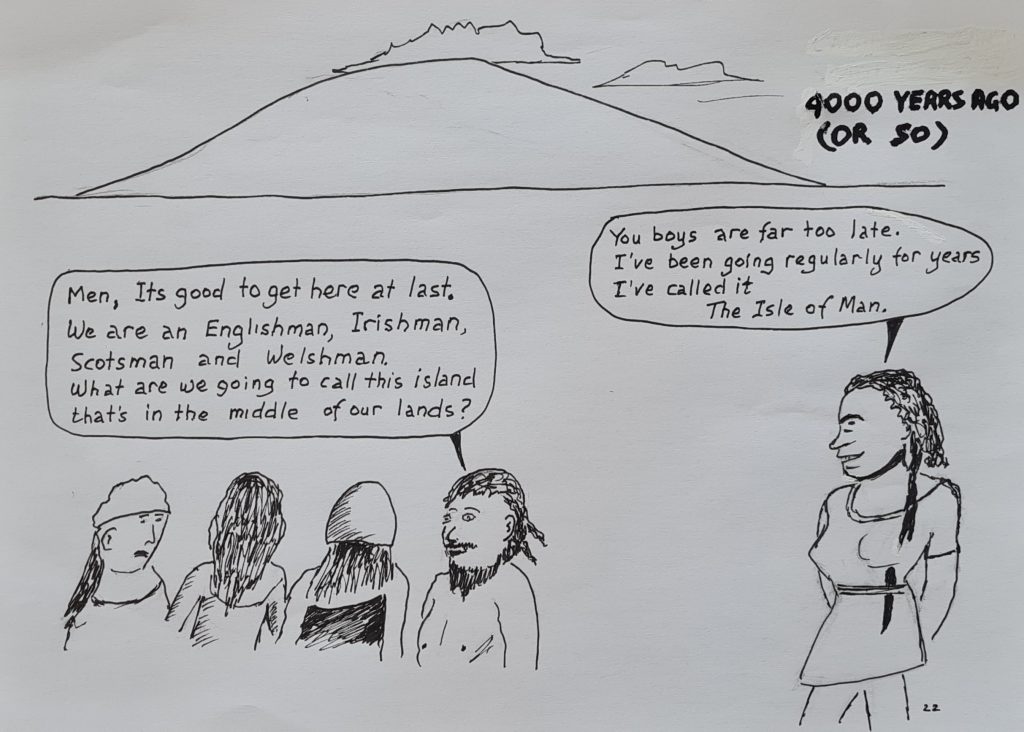 4000 YEARS AGO
(OR SO)
You boys are far too late.
I've been going regularly for years
I've called it
The Isle of Man.
Men, Its good to get here at last.
We are an Englishman, Irishman,
Scotsman and Welshman.
What are we going to call this island
that's in the middle of our lands?
22